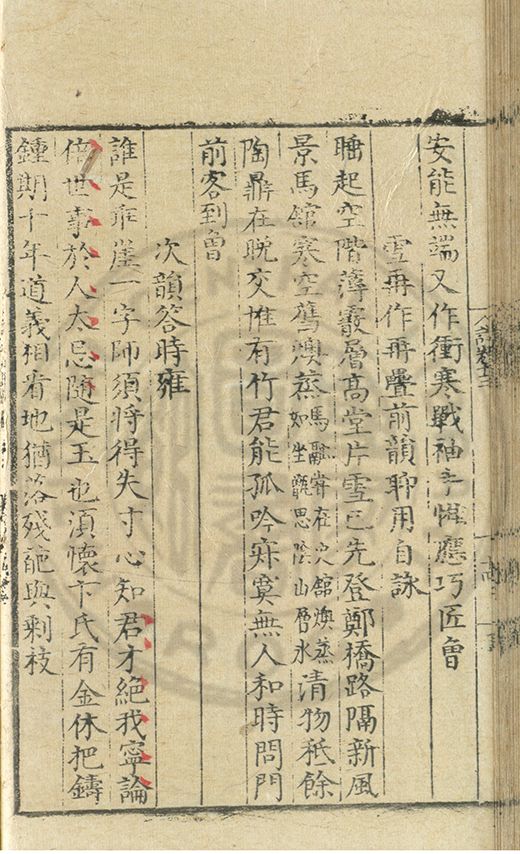 安能無端又作衝寒戰袖手慚應巧匠會
雪再作再疊前韻聊用自詠
睡起空階薄霰層高堂片雪已先登鄭橋路隔新風
景馬舘寒空舊燠蒸馬融甞在史舘燠蒸如坐甑思陰山層氷清物秪餘
陶鼎在晩交惟有竹君能孤吟寂寞無人和時問門
前客到曾
次韻答時雍
誰是乖崖一字師須將得失寸心知君才絶我寧論
倍世事於人太忌隨是玉也湏懷卞氏有金休把鑄
鍾期十年道義相看地猶落殘葩與剩枝